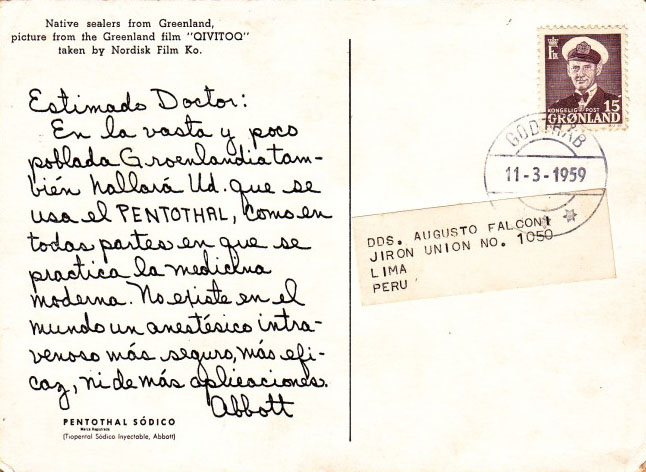 Native sealers from Greenland,
picture from the Greenland film "QIVITOQ"
taken by Nordisk Film Ko.
Estimado Doctor:
En la vasta y poco
poblada Groenlandia tam-
bién hallará Ud. que se
usa el PENTOTHAL, como en
todas partes en que se
practica la medicina
moderna. No existe en el
mundo un anestésico intra-
venoso más seguro, más efi-
caz, ni de más aplicaciones.
Abbott
PENTOTHAL SÓDICO
Marca Registrada
(Tiopental Sódico Inyectable, Abbott)
KONGELIG POST 15
GRØNLAND
GODTHÅB
11-3-1959
DDS. AUGUSTO FALCONI
JIRON UNION NO. 1050
LIMA
PERU